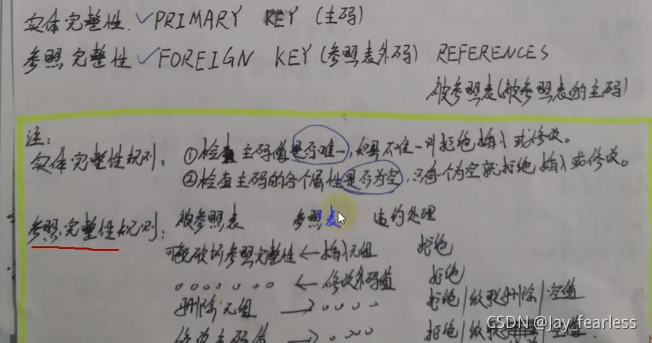 实体完整性 ✓PRIMARY KEY (主码)
参照完整性 ✓FOREIGN KEY (参照表外码) REFERENCES
被参照表(被参照表的主码)
注:
实体完整性规则: ①检查主码值是否唯一,如果不唯一则拒绝插入或修改。
②检查主码的各个属性是否为空,只要有一个为空就拒绝插入或修改。
参照完整性规则: 被参照表 参照表 违约处理
可能破坏参照完整性 ← 插入元组 拒绝
。。。。。。 ← 修改外码值 拒绝
删除元组 → 。。。。 拒绝|级联删除|空值
修改主码值 → 。。。。 拒绝|级联|空值
CSDN @Jay_fearless